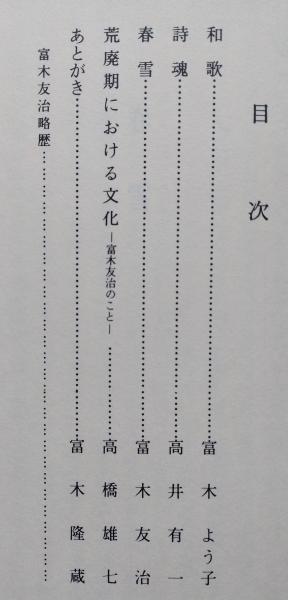 目次
和歌……富木よう子
詩魂……高井有一
春雪……富木友治
荒廃期における文化―富木友治のこと―……高橋雄七
あとがき……富木隆蔵
富木友治略歴……